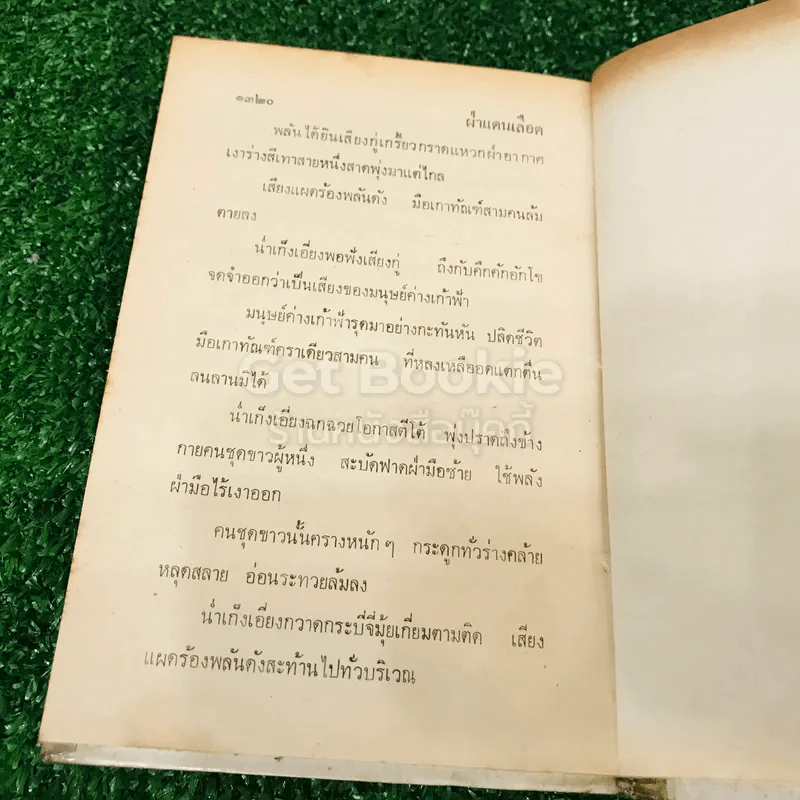 ๑๓๒๐
ฝ่าแดนเลือด
พลันได้ยินเสียงกู่เกรี้ยวกราดแหวกฝ่าอากาศ
เงาร่างสีเทาสายหนึ่งสาดพุ่งมาแต่ไกล
เสียงแผดร้องพลันดัง มือเกาทัณฑ์สามคนล้ม
ตายลง
น่ำเก็งเอี่ยงพอฟังเสียงกู่ ถึงกับคึกคักอักโข
จดจำออกว่าเป็นเสียงของมนุษย์ค่างเก้าฟ้า
มนุษย์ค่างเก้าฟ้ารุดมาอย่างกะทันหัน ปลิดชีวิต
มือเกาทัณฑ์คราเดียวสามคน ที่หลงเหลืออดแตกตื่น
ลนลานมิได้
น่ำเก็งเอี่ยงฉกฉวยโอกาสตีโต้ พุ่งปราดถึงข้าง
กายคนชุดขาวผู้หนึ่ง สะบัดฟาดฝ่ามือซ้าย ใช้พลัง
ฝ่ามือไร้เงาออก
คนชุดขาวนั้นครางหนัก ๆ กระดูกทั่วร่างคล้าย
หลุดสลาย อ่อนระทวยล้มลง
น่ำเก็งเอี่ยงกวาดกระบี่จี่มุ้ยเกี่ยมตามติด เสียง
แผดร้องพลันดังสะท้านไปทั่วบริเวณ
Get Bookie
ร้านหนังสือบุ๊คกี้